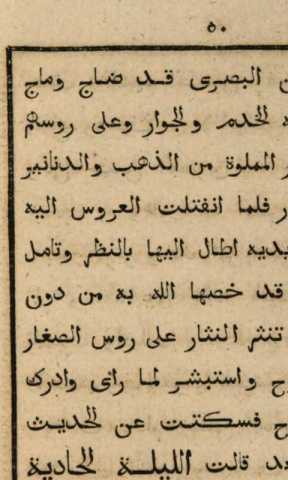 ٥٠
البصرى قد ضاج وماج
الخدم والجوار وعلى روسهم
المملوة من الذهب والدنانير
فلما انفتلت العروس اليه
يديه اطال اليها بالنظر وتامل
قد خصها الله به من دون
تنثر النثار على روس الصغار
واستبشر لما راى وادرك
فسكتت عن الحديث
قالت الليلة الحادية